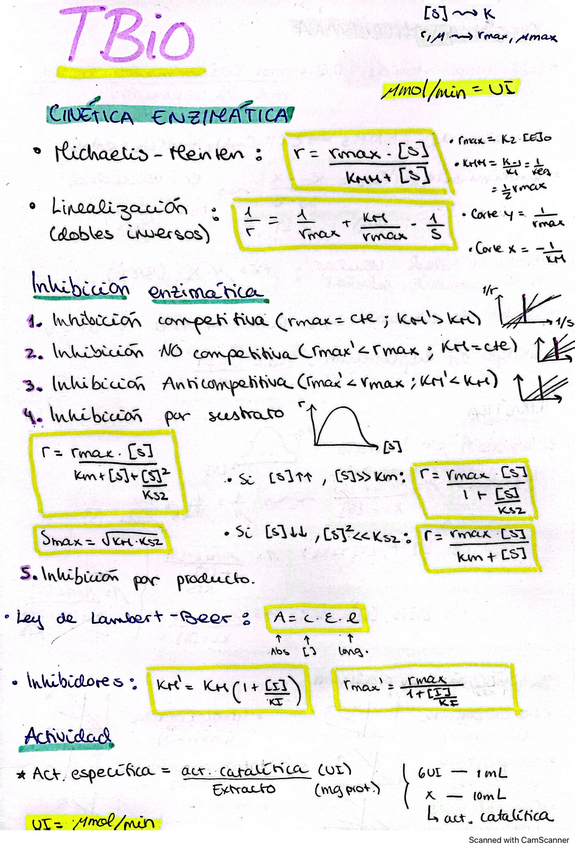 TBio
[S] ⟿ K
r, μ ⟿ rmax, μmax
μmol/min = UI
CINÉTICA ENZIMÁTICA
• Michaelis-Menten : r = rmax · [S] / KM + [S]
• rmax = K2 · [E]0
• KM = K-1/K1 =
= 1/2 rmax
• Linealización : 1/r = 1/rmax + KM/rmax · 1/S
(dobles inversos)
• Corte y = 1/rmax
• Corte x = -1/KM
Inhibición enzimática
1. Inhibición competitiva (rmax = cte ; KM' > KM)
1/r
1/S
2. Inhibición NO competitiva (rmax' < rmax ; KM = cte)
3. Inhibición Anticompetitiva (rmax' < rmax ; KM' < KM)
4. Inhibición por sustrato
r
[S]
r = rmax · [S] / Km + [S] + [S]²/KS2
• Si [S]↑↑, [S]>>Km: r = rmax · [S] / 1 + [S]/KS2
Smax = √KM · KS2
• Si [S]↓↓, [S]²<<KS2: r = rmax · [S] / Km + [S]
5. Inhibición por producto.
• Ley de Lambert-Beer : A = c · ε · l
↑ ↑ ↑
Abs [] long.
• Inhibidores : KM' = KM (1 + [I]/KI)
rmax' = rmax / 1 + [I]/KI
Actividad
* Act. específica = act. catalítica (UI) / Extracto (mg prot.)
6UI — 1mL
x — 10mL
↳ act. catalítica
UI = μmol/min
Scanned with CamScanner